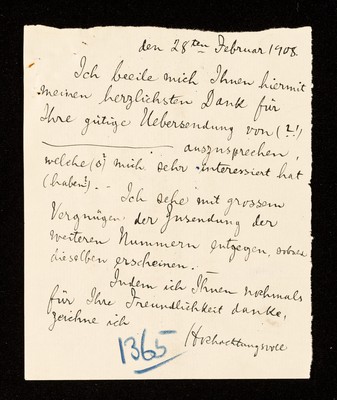 den 28ten Februar 1908.
Ich beeile mich Ihnen hiermit
meinen herzlichsten Dank für
Ihre gütige Uebersendung von (?!)
auszusprechen,
welche(s?) mich sehr interessiert hat
(haben?). -
Ich sehe mit grossem
Vergnügen der Zusendung der
weiteren Nummern entgegen,
dieselben erscheinen.
Indem ich Ihnen nochmals
für Ihre Freundlichkeit danke,
zeichne ich
Hochachtungsvoll
1365